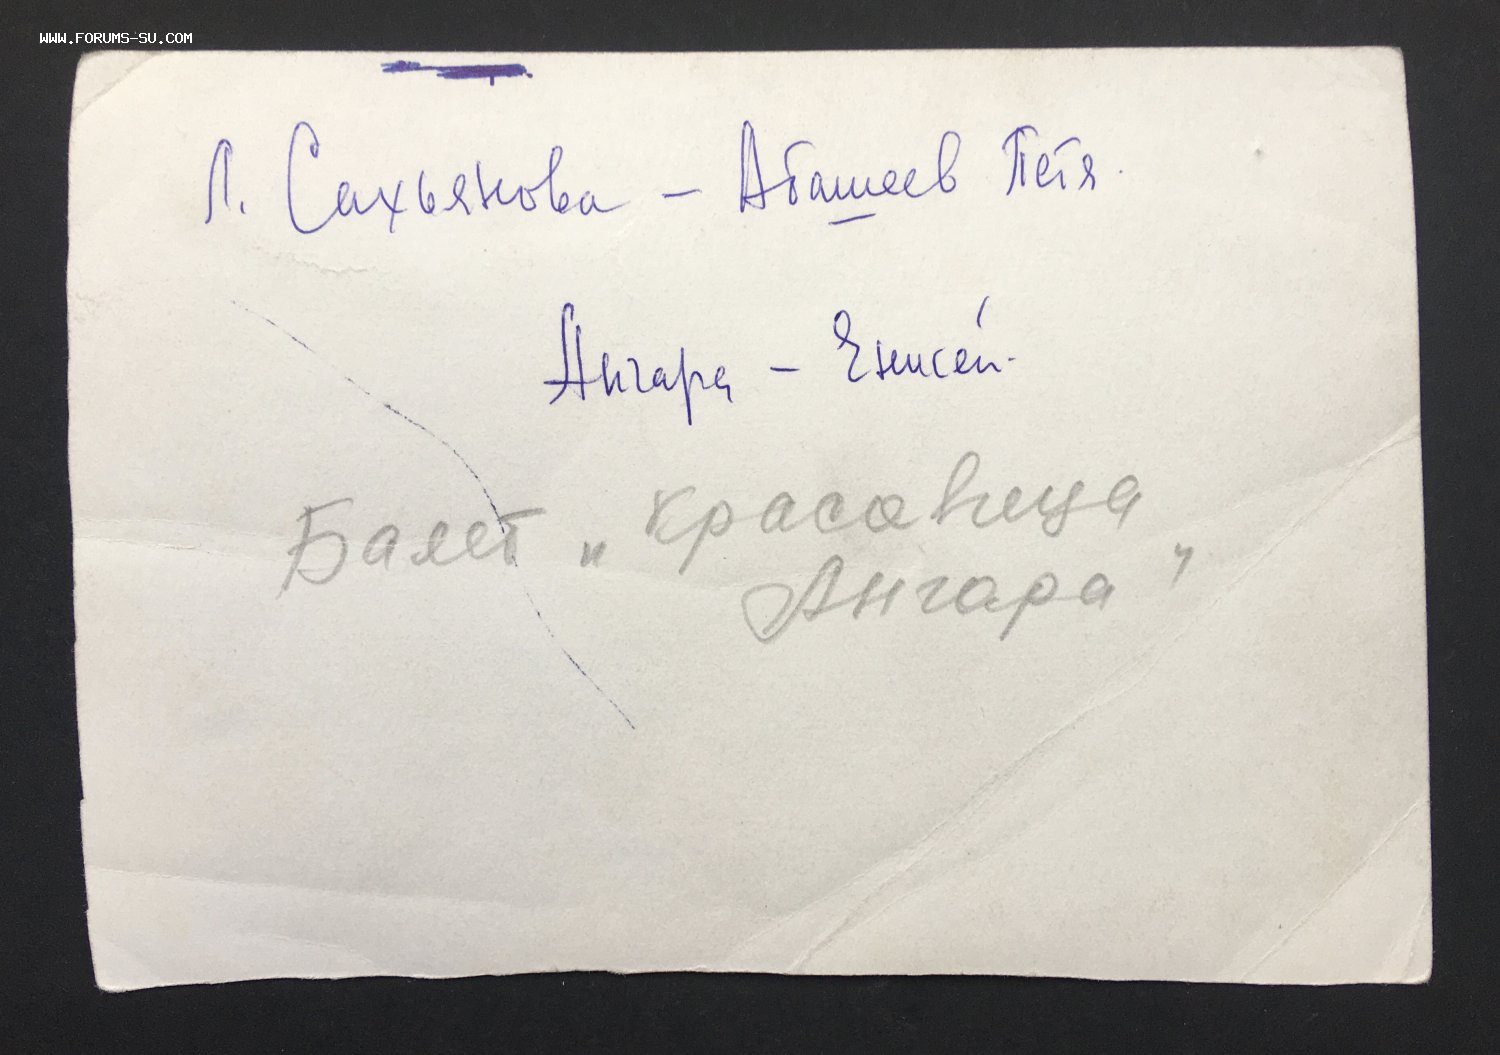 WWW.FORUMS-SU.COM
Л. Сахьянова – Абашеев Петя.
Ангара – Енисей.
Балет „Красавица
Ангара"